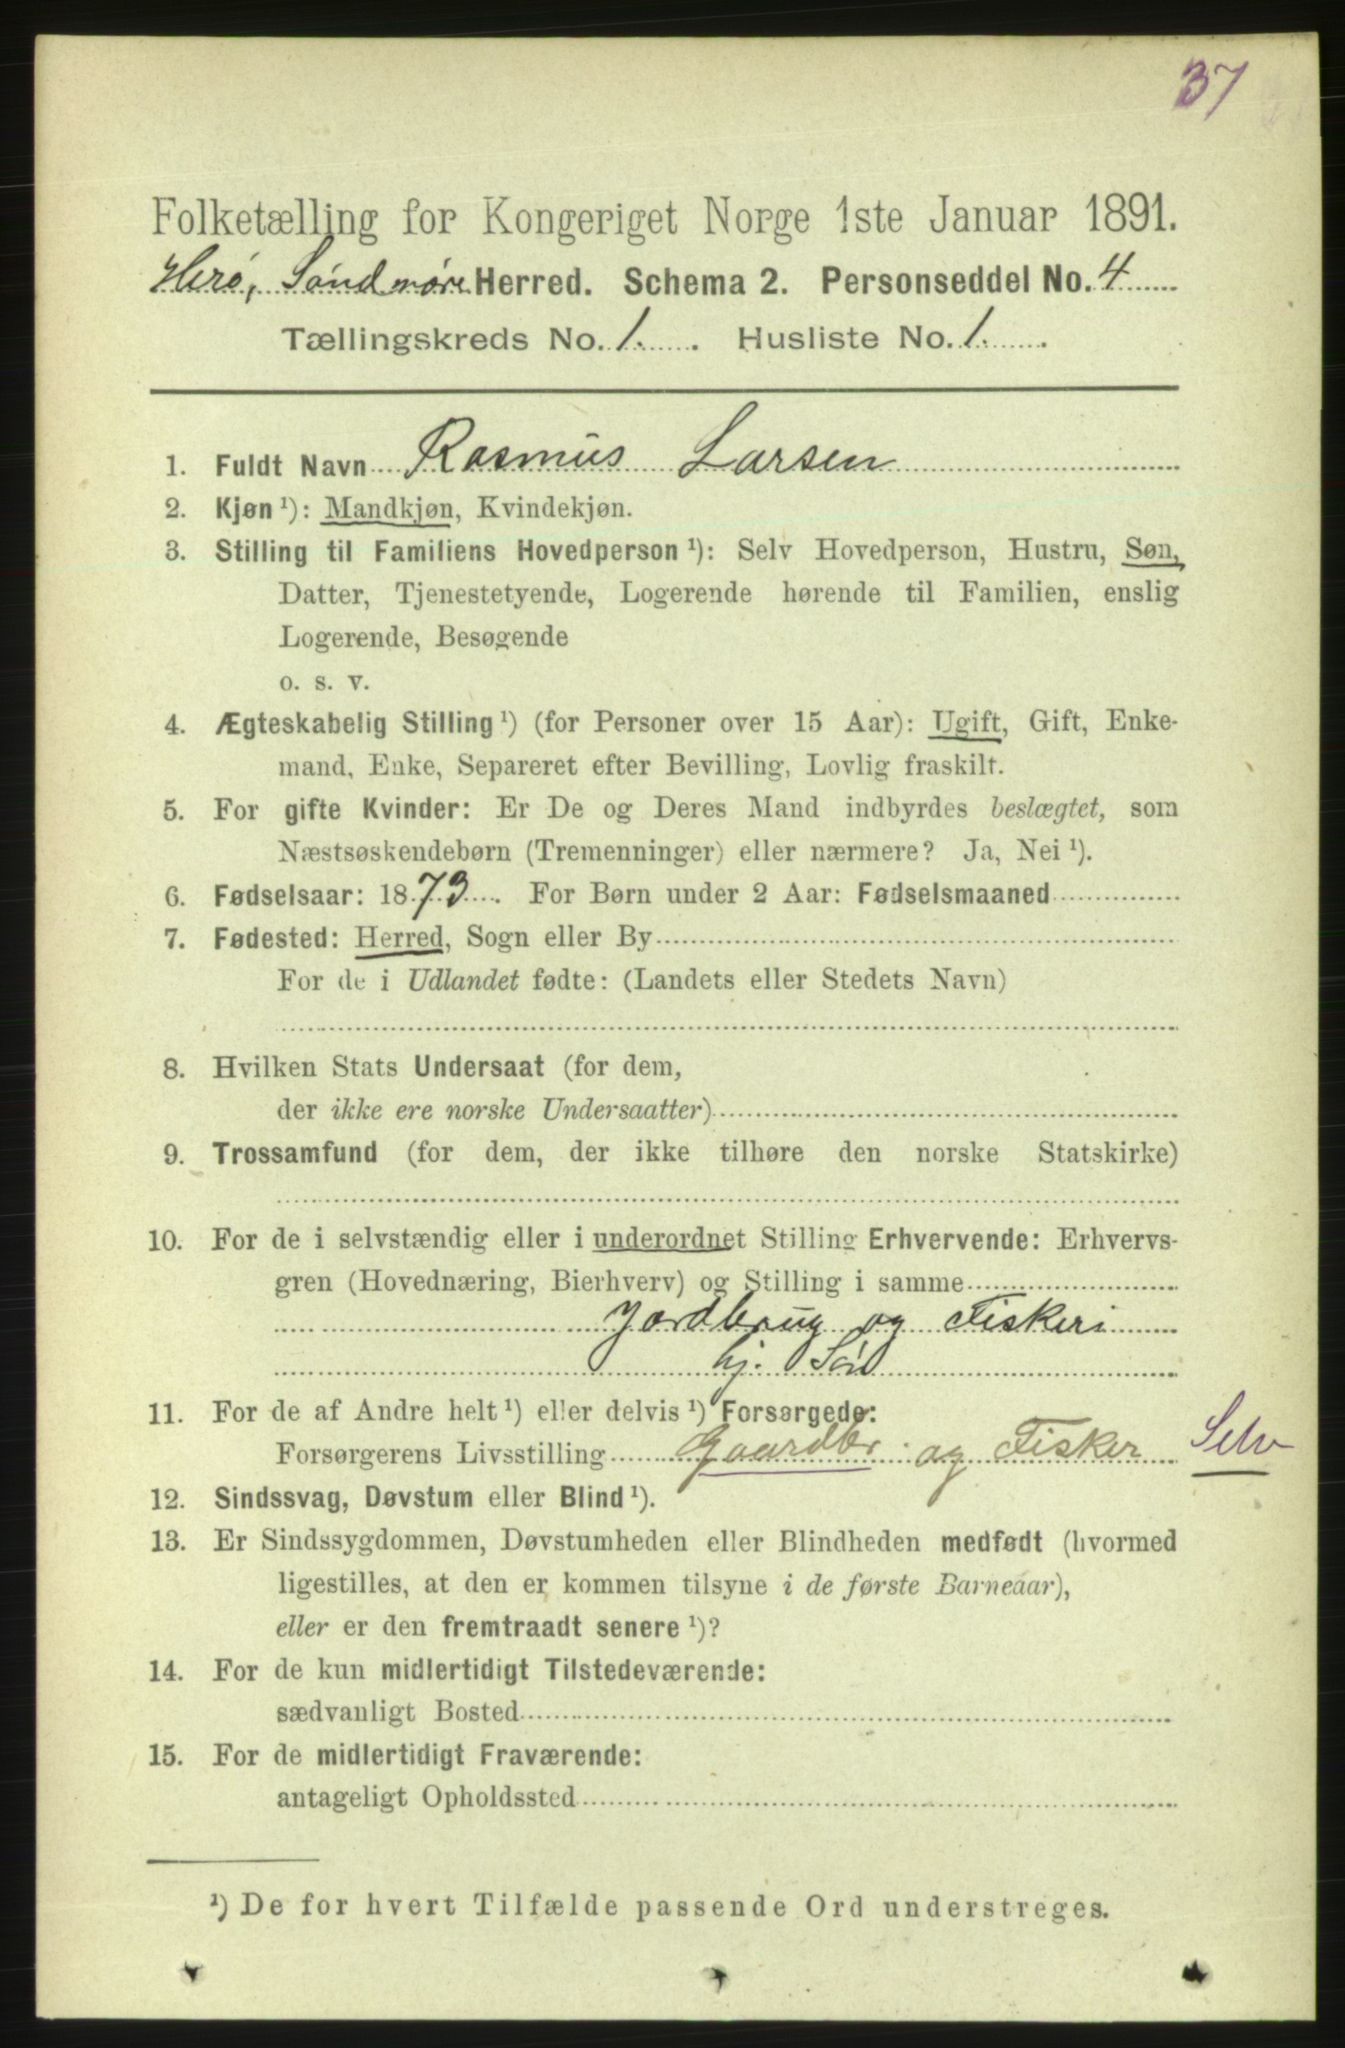 37
Folketælling for Kongeriget Norge 1ste Januar 1891.
Herø, Søndmøre Herred. Schema 2. Personseddel No. 4
Tællingskreds No. 1. Husliste No. 1.
1. Fuldt Navn Rasmus Larsen
2. Kjøn ¹): Mandkjøn, Kvindekjøn.
3. Stilling til Familiens Hovedperson ¹): Selv Hovedperson, Hustru, Søn,
Datter, Tjenestetyende, Logerende hørende til Familien, enslig
Logerende, Besøgende
o. s. v.
4. Ægteskabelig Stilling ¹) (for Personer over 15 Aar): Ugift, Gift, Enke-
mand, Enke, Separeret efter Bevilling, Lovlig fraskilt.
5. For gifte Kvinder: Er De og Deres Mand indbyrdes beslægtet, som
Næstsøskendebørn (Tremenninger) eller nærmere? Ja, Nei ¹).
6. Fødselsaar: 1873. For Børn under 2 Aar: Fødselsmaaned
7. Fødested: Herred, Sogn eller By
For de i Udlandet fødte: (Landets eller Stedets Navn)
8. Hvilken Stats Undersaat (for dem,
der ikke ere norske Undersaatter)
9. Trossamfund (for dem, der ikke tilhøre den norske Statskirke)
10. For de i selvstændig eller i underordnet Stilling Erhvervende: Erhvervs-
gren (Hovednæring, Bierhverv) og Stilling i samme
Jordbrug og Fiskeri
hj. Søn
11. For de af Andre helt ¹) eller delvis ¹) Forsørgede:
Forsørgerens Livsstilling Gaardbr. og Fisker Selv
12. Sindssvag, Døvstum eller Blind ¹).
13. Er Sindssygdommen, Døvstumheden eller Blindheden medfødt (hvormed
ligestilles, at den er kommen tilsyne i de første Barneaar),
eller er den fremtraadt senere ¹)?
14. For de kun midlertidigt Tilstedeværende:
sædvanligt Bosted
15. For de midlertidigt Fraværende:
antageligt Opholdssted
¹) De for hvert Tilfælde passende Ord understreges.